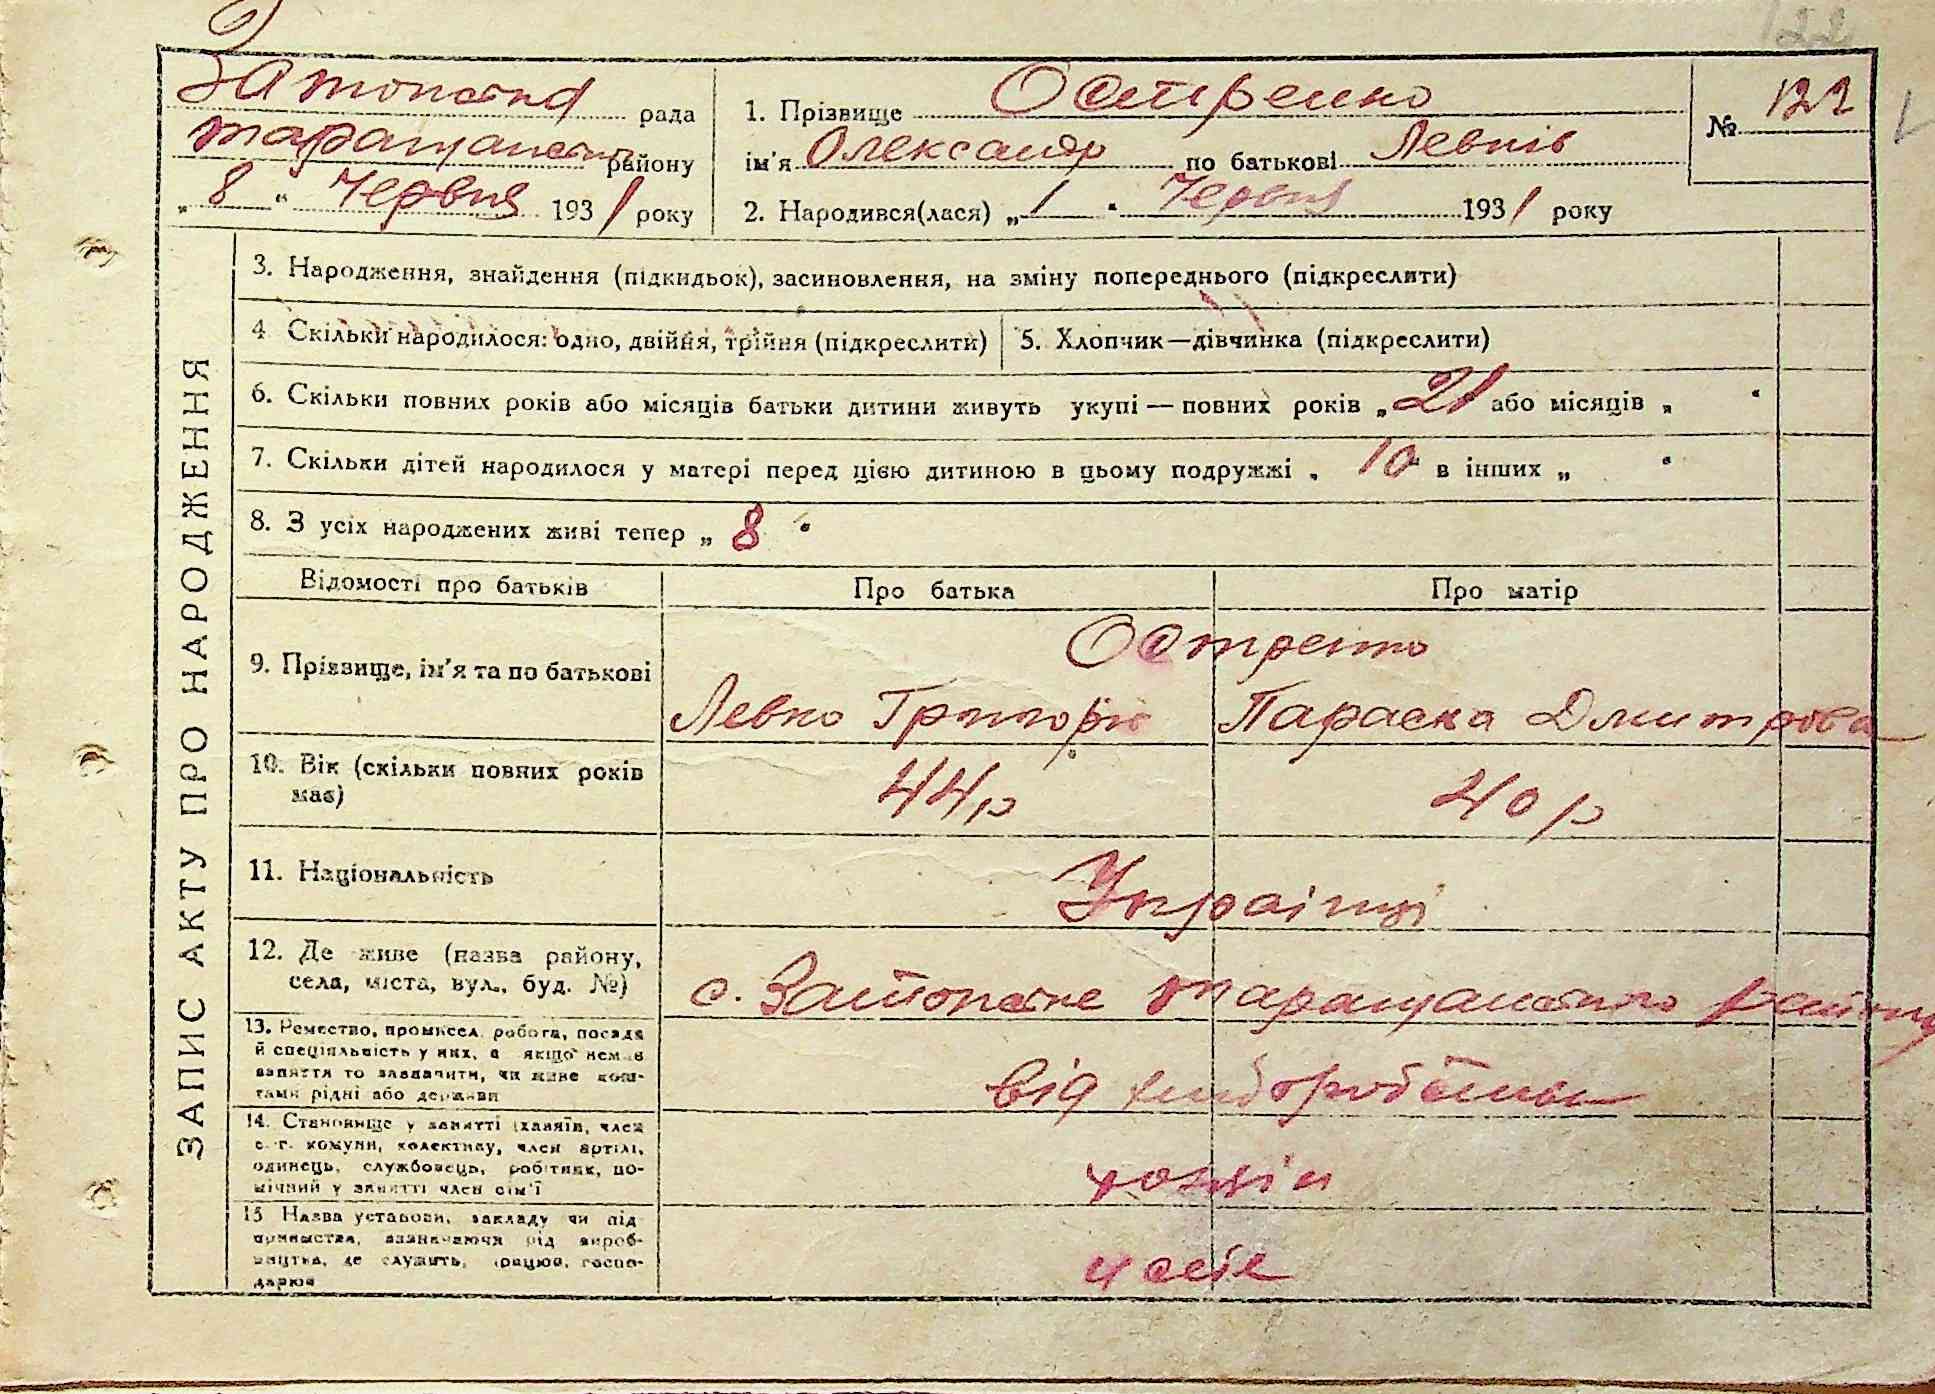 122
Затопська рада
Таращанськ району
„ 8 “ Червня 1931 року
1. Прізвище Остренко
ім'я Олександр по батькові Левків
2. Народився(лася) „ 1 “ Червня 1931 року
№ 122
ЗАПИС АКТУ ПРО НАРОДЖЕННЯ
3. Народження, знайдення (підкидьок), засиновлення, на зміну попереднього (підкреслити)
4 Скільки народилося: одно, двійня, трійня (підкреслити)
5. Хлопчик—дівчинка (підкреслити)
6. Скільки повних років або місяців батьки дитини живуть укупі — повних років „ 21 або місяців „ “
7. Скільки дітей народилося у матері перед цією дитиною в цьому подружжі „ 10 “ в інших „ “
8. З усіх народжених живі тепер „ 8 “
Відомості про батьків Про батька Про матір
9. Прізвище, ім'я та по батькові
Остренко
Левко Григорів Параска Дмитрова
10. Вік (скільки повних років
має)
44 р 40 р
11. Національність
Українці
12. Де живе (назва району,
села, міста, вул., буд. №)
с. Затопське Таращанського району
13. Ремество, промисел, робота, посада
й спеціяльність у них, а якщо немає
заняття то зазначити, чи живе кош-
тами рідні або держави
від хліборобства
14. Становище у занятті (хазяїн, член
с.-г. комуни, колективу, член артілі,
одинець, службовець, робітник, по-
мічний у занятті член сім'ї
хазяїн
15 Назва установи, закладу чи під-
приємства, зазначаючи рід вироб-
ництва, де служить, працює, госпо-
дарює
у себе